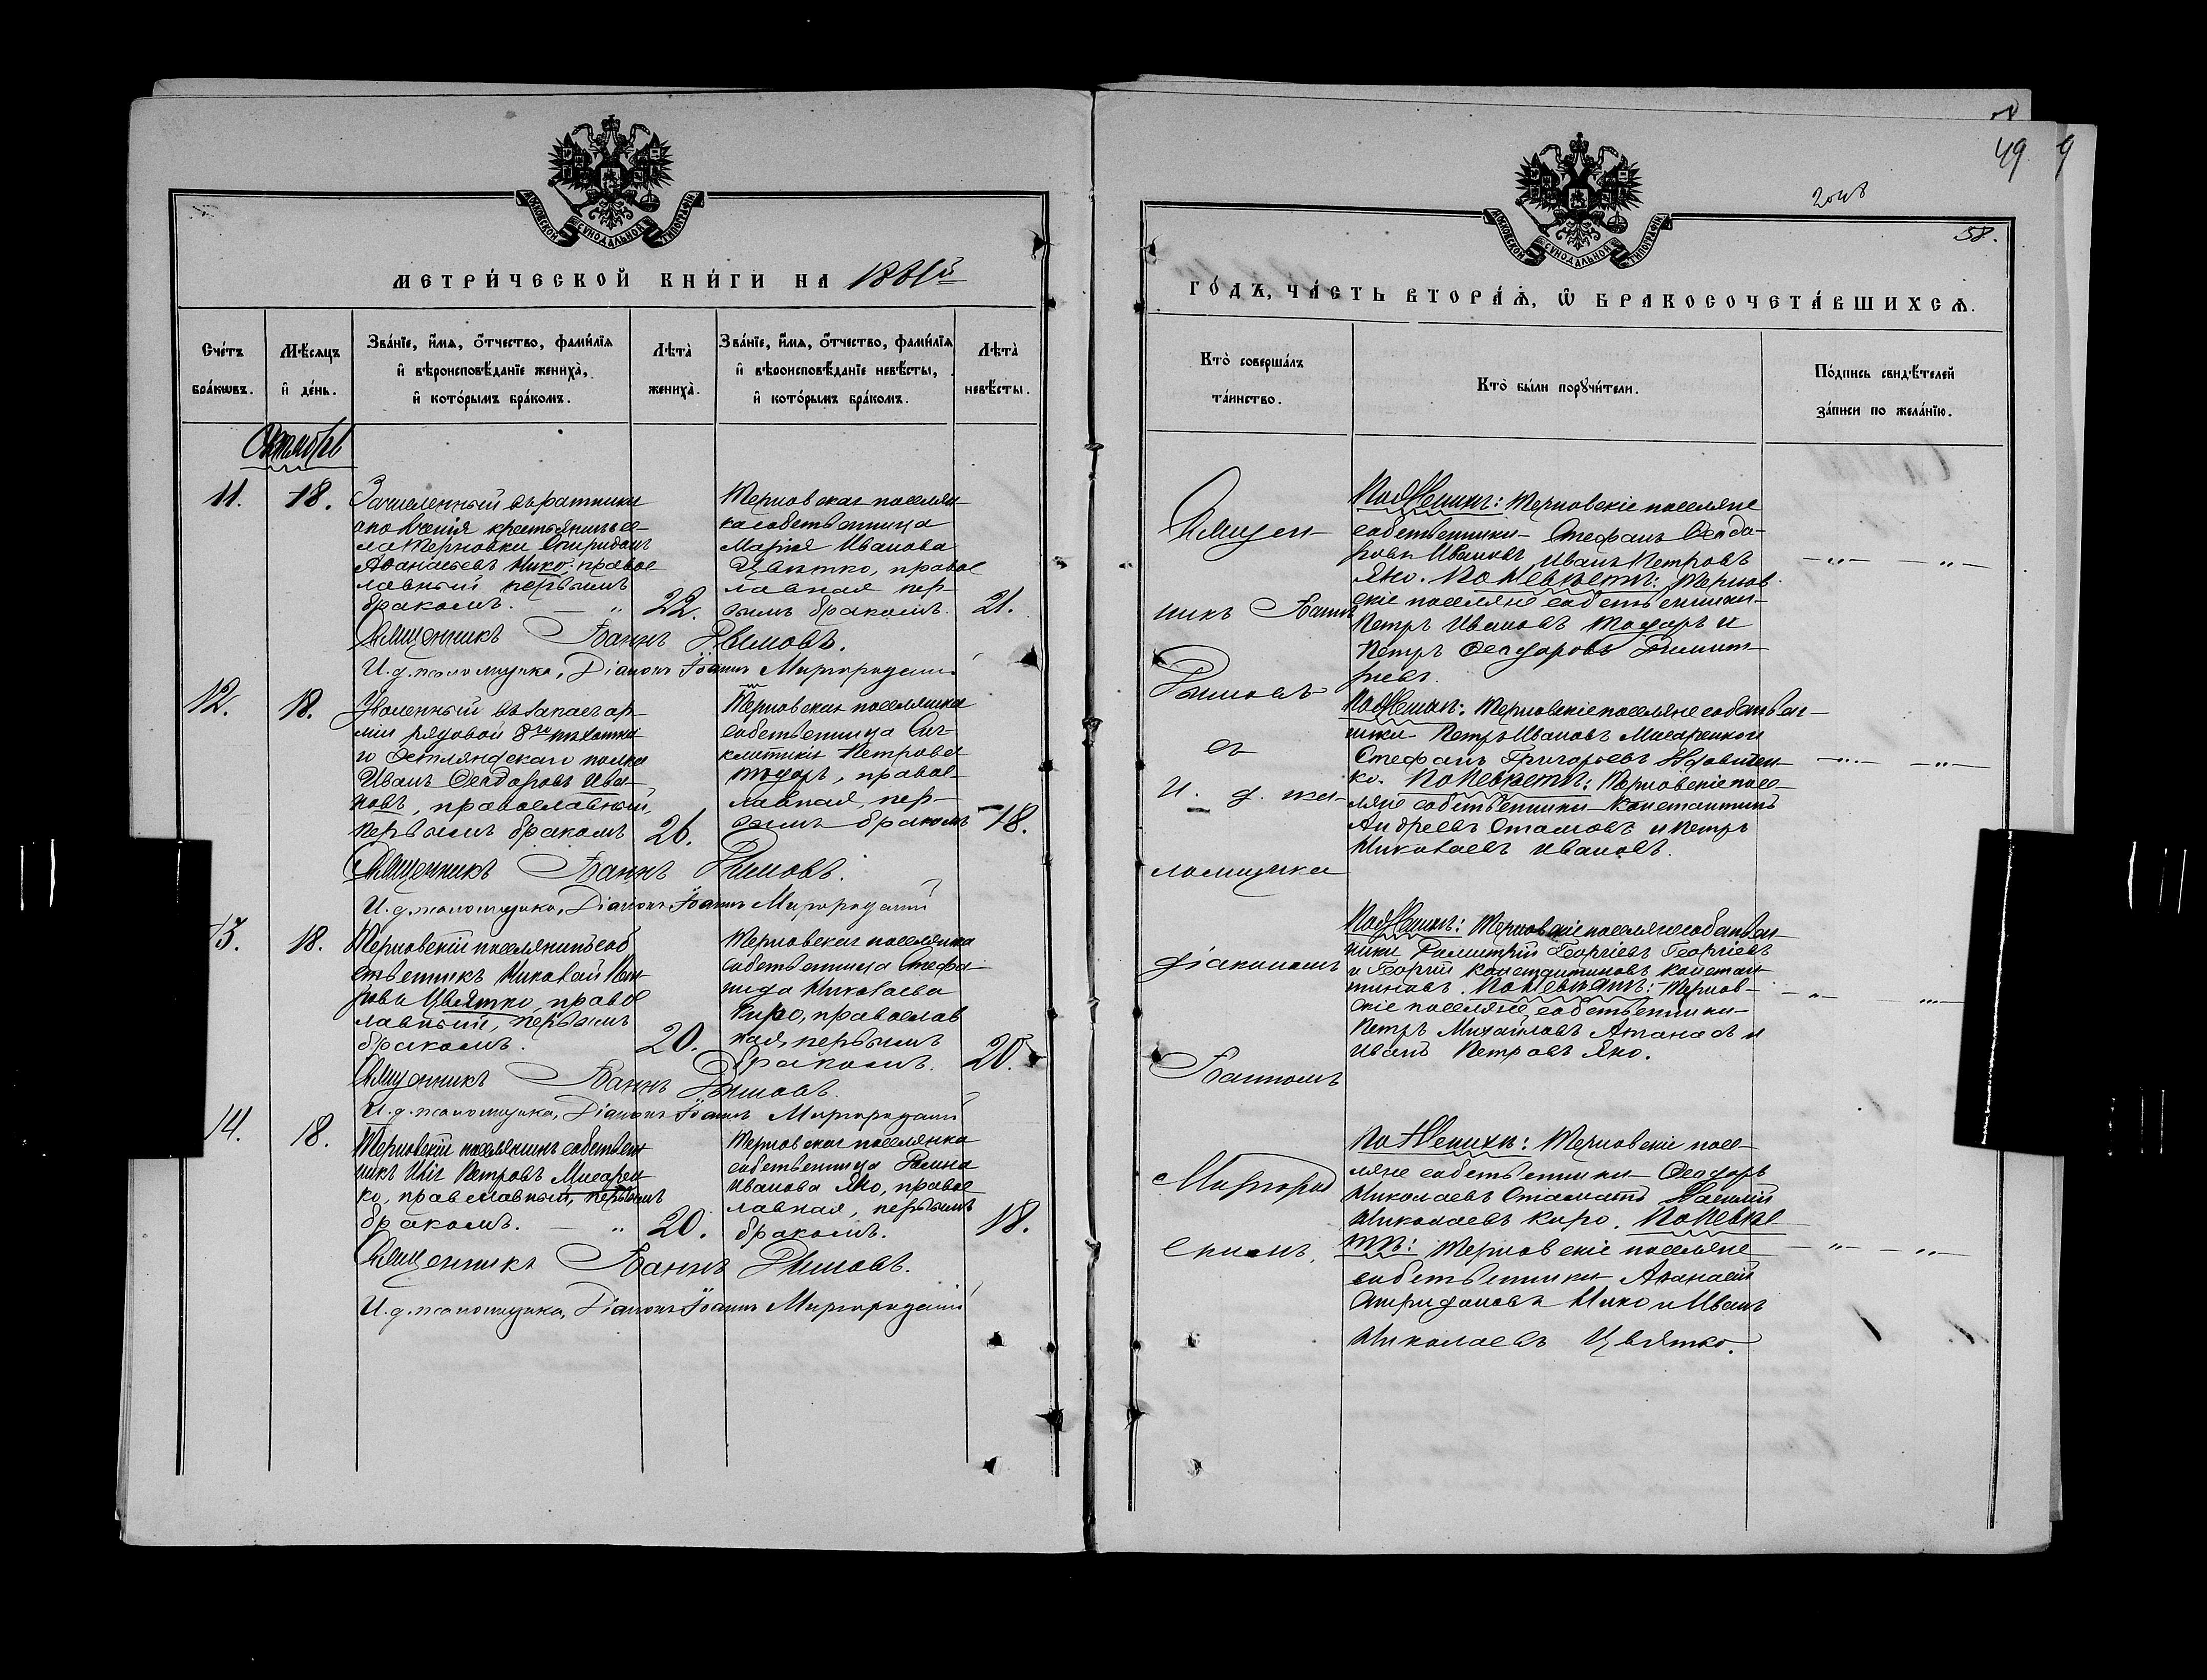 МОСКОВСКОЙ СѴНОДАЛЬНОЙ ТИПОГРАФІИ
МЕТРИ́ЧЕСКОЙ КНИ́ГИ НА 1881й
Сче́тъ бра́кωвъ.
Мѣ́сяцъ и҆ де́нь.
Зва́нїе, и҆́мя, ѻ҆́тчество, фами́лїя
и҆ вѣроисповѣ́данїе жениха̀,
и҆ кото́рымъ бра́комъ.
Лѣ́та̀ жениха̀.
Зва́нїе, и҆́мя, ѻ҆́тчество, фами́лїя
и҆ вѣроисповѣ́данїе невѣ́сты,
и҆ кото́рымъ бра́комъ.
Лѣ́та̀ невѣ́сты.
Октябрь
11. 18.
Зачисленный въ ратники
ополченія крестьянинъ се-
ла Терновки Спиридонъ
Аѳанасьевъ Нико, право
славный первымъ
бракомъ. — „ 22.
Терновская поселян
ка собственница
Марія Иванова
Цвятко, правос
лавная пер-
вымъ бракомъ. 21.
Священникъ Іоаннъ Рымовъ.
И. д. псаломщика, Діаконъ Іоаннъ Миргородскій
12. 18.
Уволенный въ запасъ ар-
міи рядовой 8го пѣхотна
го Эстляндскаго полка
Иванъ Ѳеодоровъ Ива-
новъ, православный,
первымъ бракомъ 26.
Терновская поселянка
собственница
Петрова
Тодоръ, правос-
лавная, пер-
вымъ бракомъ 18.
Священникъ Іоаннъ Рымовъ.
И. д. псаломщика, Діаконъ Іоаннъ Миргородскій
13. 18.
Терновскій поселянинъ соб
ственникъ Николай
Цвятко, правос
лавный, первымъ
бракомъ. 20.
Терновская поселянка
собственница Стефа-
нида Николаева
Киро, православ
ная, первымъ
бракомъ. 20.
Священникъ Іоаннъ Рымовъ.
И. д. псаломщика, Діаконъ Іоаннъ Миргородскій
14. 18.
Терновскій поселянинъ собствен
никъ Илія Петровъ Мисарен
ко, православный, первымъ
бракомъ. — „ 20.
Терновская поселянка
собственница
Иванова Яно, правос
лавная, первымъ
бракомъ. 18.
Священникъ Іоаннъ Рымовъ.
И. д. псаломщика, Діаконъ Іоаннъ Миргородскій
49 9
58.
МОСКОВСКОЙ СѴНОДАЛЬНОЙ ТИПОГРАФІИ
ГО́ДЪ, ЧА́СТЬ ВТОРА́Ѧ, Ѽ БРАКОСОЧЕТА́ВШИХСѦ.
Кто̀ соверша́лъ
та́инство.
Кто̀ бы́ли порꙋчи́тели.
По́дпись свидѣ́телей
за́писи по жела́нїю.
Священ
никъ Іоаннъ
Рымовъ
съ
И. д. пса-
ломщика
діакономъ
Іоанномъ
Миргород
скимъ.
По Женихѣ: Терновскіе поселяне
собственники Стефанъ Ѳеодо-
ровъ Ивановъ Иванъ Петровъ
Яно. По Невѣстѣ: Тернов
скіе поселяне собственники-
Петръ Ивановъ Тодоръ и
Петръ Ѳеодоровъ Димит-
ріевъ.
По Женихѣ: Терновскіе поселяне собствен-
ники Петръ Ивановъ Мисаренко и
Стефанъ Григорьевъ
ко. По Невѣстѣ: Терновскіе посе-
ляне собственники Константинъ
Андреевъ Стамовъ и Петръ
Николаевъ Ивановъ.
По Женихѣ: Терновскіе поселяне собствен-
ники Димитрій Георгіевъ Георгіевъ
и Георгій Константиновъ Констан
тиновъ. По Невѣстѣ: Тернов-
скіе поселяне, собственники-
Петръ Михайловъ Атанасъ и
Иванъ Петровъ Яно.
По Женихѣ: Терновскіе посе-
ляне собственники Ѳеодоръ
Николаевъ Стаматъ Василій
Николаевъ Киро. По Невѣс
тѣ: Терновскіе поселяне
собственники Аѳанасій
Спиридоновъ Нико и Иванъ
Николаевъ Цвятко.